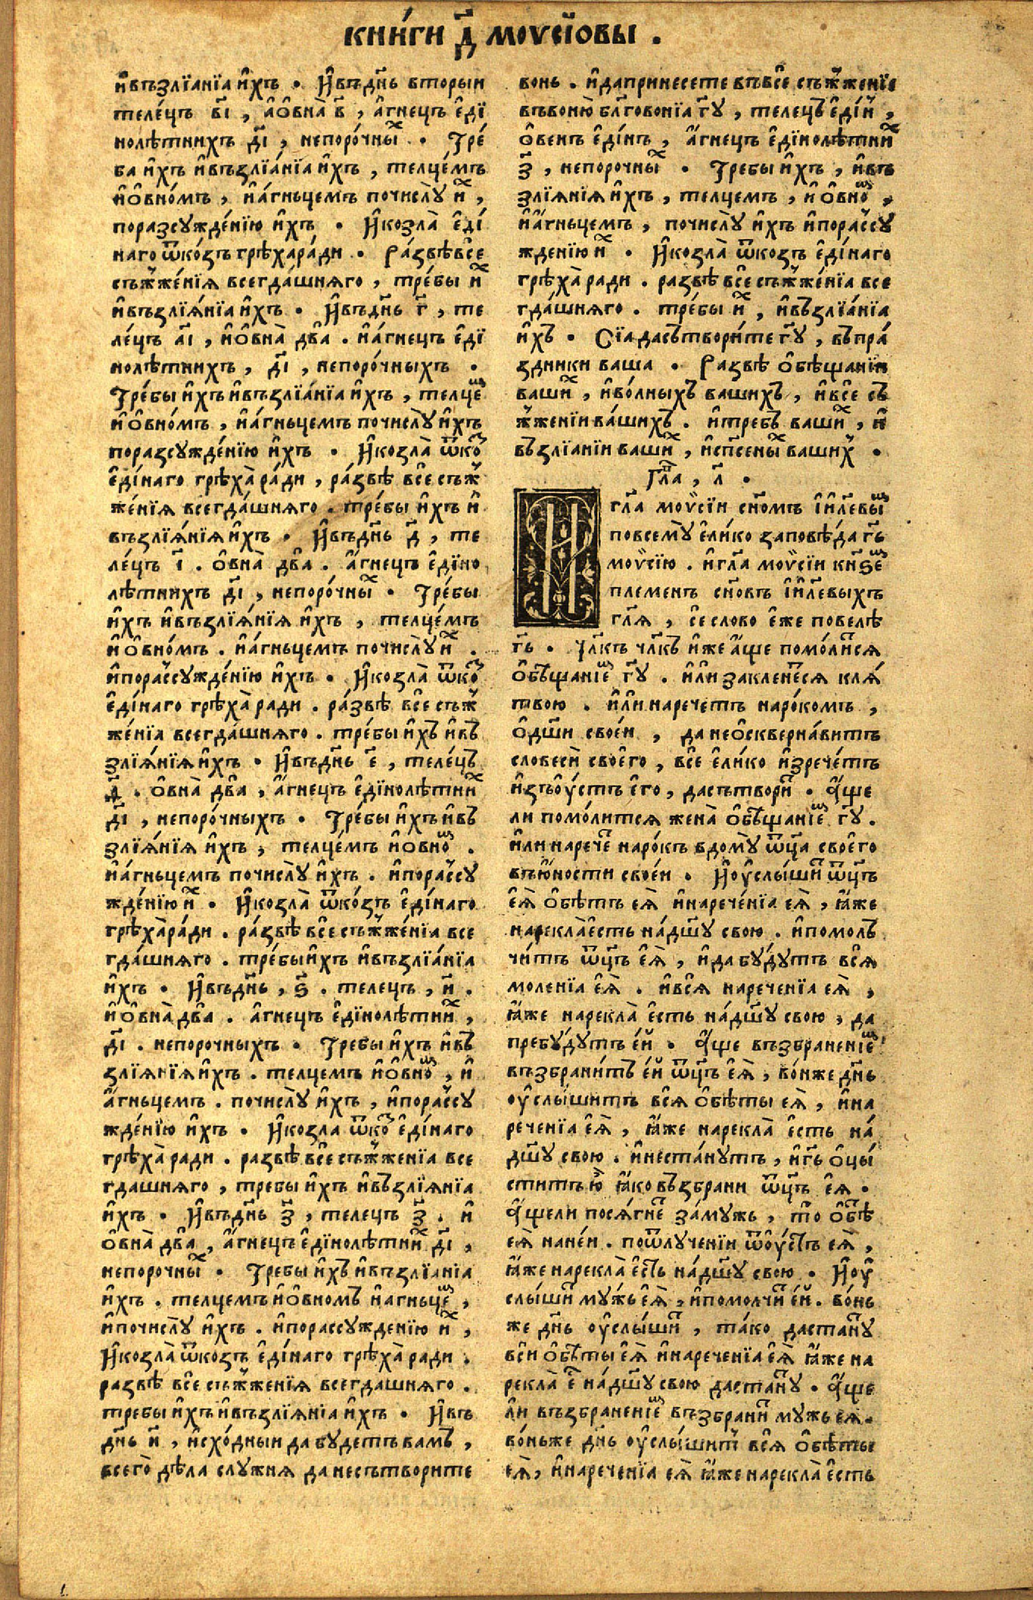 кни́ги д҃ моѵсіѡвы .
и҆възлїанїа и҆хъ . И҆въдн҃ь вторыи
теле́цъ в҃і , а҆ѻвна̀ в҃ , а҆́гнецъ є҆ді
нолѣтнихъ д҃і , непоро́чныⷯ . Тре́
ба и҆хъ и҆възлїа́нїа и҆хъ , телце́мъ
и҆ѻвно́мъ , и҆а҆́гньцемъ почислу̀ и҆ⷯ ,
поразсужде́нїю и҆́хъ . И҆козла̀ є҆ді́
наго ѿко́зъ грѣхара́ди . Ра́звѣ все
съжже́нїа всегда́шняго , тре́бы и҆ⷯ
и҆възлїя́нїа и҆хъ . И҆въдн҃ь г҃ , те
ле́цъ а҃і , и҆ѻвна̀ два . и҆а҆́гнецъ є҆ді
нолѣтнихъ , д҃і , непоро́чныхъ .
Тре́бы и҆хъ и҆възлїа́нїа и҆хъ , телцеⷨ
и҆ѻвно́мъ , и҆а҆́гньцемъ почислу̀ и҆хъ
поразсужде́нїю и҆хъ . И҆козла̀ ѿкоⷥ
є҆ді́наго грѣха̀ ра́ди , ра́звѣ все съж
же́нїя всегда́шняго . тре́бы и҆хъ и҆
възлїя́нїя и҆хъ . И҆въдн҃ь д҃ , те
ле́цъ і҃ . ѻвна̀ два . а҆́гнецъ є҆діно
лѣтнихъ д҃і , непоро́чныⷯ . Тре́бы
и҆хъ и҆възлїя́нїя и҆хъ , телце́мъ
и҆ѻвно́мъ . и҆а҆́гньцемъ почислу̀ и҆ⷯ .
и҆порассужде́нїю и҆хъ . И҆козла̀ ѿкоⷥ
є҆ді́наго грѣха̀ ра́ди . ра́звѣ все съж
же́нїя всегда́шняго . тре́бы и҆хъ и҆въ
злїя́нїя и҆хъ . И҆въдн҃ь є҃ , теле́цъ
д҃ . ѻвна̀ два , а҆́гнецъ є҆дінолѣтниⷯ
д҃і , непоро́чныхъ . Тре́бы и҆хъ и҆въ
злїя́нїя и҆хъ , телце́мъ и҆ѻвноⷨ .
и҆а҆́гньцемъ почислу̀ и҆хъ . и҆порассу
жде́нїю и҆ⷯ . И҆козла̀ ѿко́зъ є҆ді́наго
грѣха̀ра́ди . ра́звѣ все съжже́нїа все
гда́шняго . тре́бы и҆хъ и҆възлїа́нїа
и҆хъ . И҆въдн҃ь , ѕ҃ . телецъ , и҃ .
и҆ѻвна̀ два . а҆́гнецъ є҆дінолѣтниⷯ ,
д҃і . непорочныхъ . Тре́бы и҆хъ и҆въ
злїя́нїя и҆хъ . телцемъ и҆ѻвноⷨ , и҆
а҆́гньцемъ . почислу̀ и҆хъ , и҆порассу
жде́нїю и҆хъ . И҆козла ѿкоⷥ є҆ді́наго
грѣха̀ ради . развѣ все съжженїа все
гдашняго , требы и҆хъ и҆възлїянїа
и҆хъ . И҆въдн҃ь з҃ , телецъ з҃ . и҆
ѻвна̀ два , а҆́гнецъ є҆дінолѣтниⷯ д҃і ,
непорочныⷯ . Требы и҆хъ и҆възлїанїа
и҆хъ . телцемъ и҆ѻвномъ и҆агньцеⷨ ,
и҆почислу̀ и҆хъ . и҆порассужденїю и҆ⷯ ,
И҆козла̀ ѿкозъ є҆ді́наго грѣха̀ ради .
развѣ все съжженїя всегдашняго .
требы и҆хъ и҆възлїянїа и҆хъ . И҆въ
дн҃ь и҃ , и҆схо́дныи да будетъ вамъ ,
всего̀ дѣла служня да несътворите
вонь . и҆дапринесете въ все съжженїе
въвоню̀ бл҃говонїа гд҃у , телецъ є҆ди́нъ ,
ѻвенъ є҆ди́нъ , а҆́гнецъ є҆дінолѣтниⷯ
з҃ , непорочныⷯ . Требы и҆хъ , и҆въ
злїянїя и҆хъ , телцемъ , и҆ѻвноⷨ ,
и҆а҆́гньцемъ , почислу̀ и҆хъ и҆порассу
жденїю и҆ⷯ . И҆козла̀ ѿкозъ є҆ді́наго
грѣха̀ ради . развѣ все съжженїа все
гда́шняго . требы и҆ⷯ , и҆възлїанїа
и҆хъ . Сїа дасътвори́те гд҃у , въпра́
здники ваша . Развѣ ѻбѣщанїи
вашиⷯ , и҆волныхъ вашихъ , и҆все съ
жженїи ва́шихъ . и҆требъ вашиⷯ , и҆
възлїанїи вашиⷯ , и҆сп҃сеныⷯ вашиⷯ .
Глⷡ҇а , л҃ .
И҆ гл҃а моѵ̈сіи сн҃омъ і҆и҃левыⷨ
повсему̀ є҆ли́ко заповѣ́да гд҃ь
моѵ̈сїю . и҆гл҃а моѵ̈сіи кнѕ҃еⷨ
племенъ сн҃овъ і҆и҃левыхъ
гл҃я , се слово є҆же повелѣ
гд҃ь . Чл҃къ чл҃къ и҆же а҆́ще помо́литⷭ҇ся
ѻбѣщанїеⷨ гд҃у . и҆лѝ закленеⷮся кля́
твою . и҆лѝ нарече́тъ наро́комъ ,
ѻдш҃и свое́и , да неѻсквернавитъ
словесѝ своего , все є҆ли́ко и҆зрече́тъ
и҆зъѹ҆стъ є҆го̀ , дасътвориⷮ . А҆́ще
ли помо́лится жена̀ ѻбѣщанїеⷨ гд҃у .
и҆лѝ наречеⷮ наро́къ вдому̀ ѿц҃а свое́го
въю҆ности свое́и . И҆ѹ҆слышиⷮ ѿц҃ъ
є҆я̀ ѻбѣ́тъ є҆я̀ и҆нарече́нїа є҆я̀ , ꙗ҆́же
нарекла̀е́сть на́дш҃у свою . и҆помоль
чи́тъ ѿц҃ъ є҆я̀ , и҆да бу́дутъ вся
моленїа є҆я̀ . и҆вся̀ нареченїя є҆я̀ ,
ꙗ҆́же нарекла̀ є҆́сть на́дш҃у свою , да
пребу́дутъ є҆́й . А҆́ще възбраненїеⷨ
възбрани́тъ є҆́й ѿц҃ъ є҆я̀ , во́ньже дн҃ь
ѹ҆слы́шитъ вся ѻбѣты є҆я̀ , и҆на
реченїа є҆я̀ , ꙗ҆́же нарекла̀ є҆́сть на́
дш҃у свою . и҆неста́нутъ , и҆гд҃ь ѻцы́
ститъ ю҆̀ ꙗ҆́ко възбрани ѿц҃ъ є҆я̀ .
А҆́щели посягнеⷮ за́мужь , то ѻбѣⷮ
є҆я̀ нане́и . поѿлученїи ѿѹ҆стъ є҆я̀ ,
ꙗ҆́же нарекла̀ є҆́сть на́дш҃у свою . И҆ѹ҆
слы́шиⷮ му́жь є҆я̀ , и҆помолчиⷮ є҆́й . во́нь
же дн҃ь ѹ҆слы́шиⷮ , та́ко дастаⷩу
вси ѻбѣты є҆я̀ и҆нареченїа є҆я̀ ꙗ҆́же на
рекла̀ єⷭ на́дш҃у свою дастаⷩу . А҆́ще
ли възбраненїеⷨ възбраниⷮ мужь є҆я̀ .
во́ньже днь ѹ҆слы́шитъ вся̀ ѻбѣты
є҆я̀ , и҆нареченїа є҆я̀ ꙗ҆́же нарекла̀ є҆сть